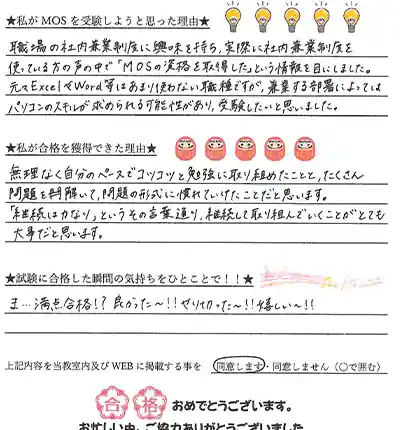 ★私が MOS を受験しようと思った理由★
職場の社内兼業制度に興味を持ち、実際に社内兼業制度を
使っている方の声の中で「MOSの資格を取得した」という情報を目にしました。
元々ExcelやWord等はあまり使わない職種ですが、兼業する部署によっては
パソコンのスキルが求められる可能性があり、受験したいと思いました。
★私が合格を獲得できた理由★
無理なく自分のペースでコツコツと勉強に取り組めたことと、たくさん
問題を解いて、問題の形式に慣れていけたことだと思います。
「継続は力なり」というその言葉通り、継続して取り組んでいくことがとても
大事だと思います。
★試験に合格した瞬間の気持ちをひとことで！！★
ま…満点合格！？良かった〜！！やりきった〜！！嬉しい〜！！
上記内容を当教室内及び WEB に掲載する事を 同意します・同意しません（〇で囲む）
合格 おめでとうございます。
お忙しい中、ご協力ありがとうございました